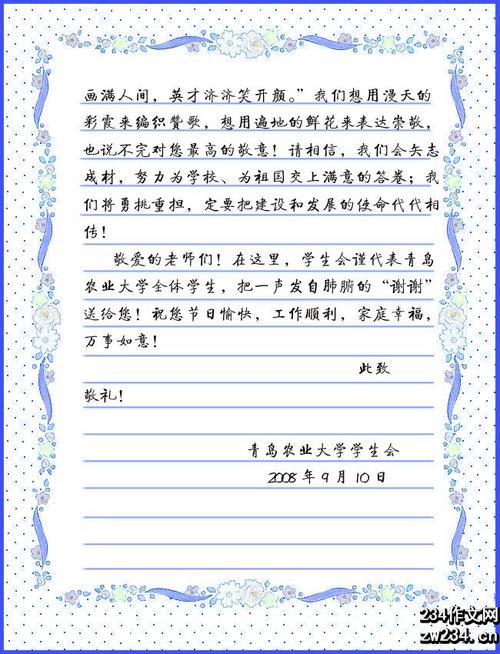 画满人间，英才济济笑开颜。”我们想用漫天的
彩霞来编织赞歌，想用遍地的鲜花来表达崇敬，
也说不完对您最高的敬意！请相信，我们会矢志
成材，努力为学校、为祖国交上满意的答卷；我
们将勇挑重担，定要把建设和发展的使命代代相
传！
敬爱的老师们！在这里，学生会谨代表青岛
农业大学全体学生，把一声发自肺腑的“谢谢”
送给您！祝您节日愉快，工作顺利，家庭幸福，
万事如意！
此致
敬礼！
青岛农业大学学生会
2008年9月10日
234作文网
zw234.cn